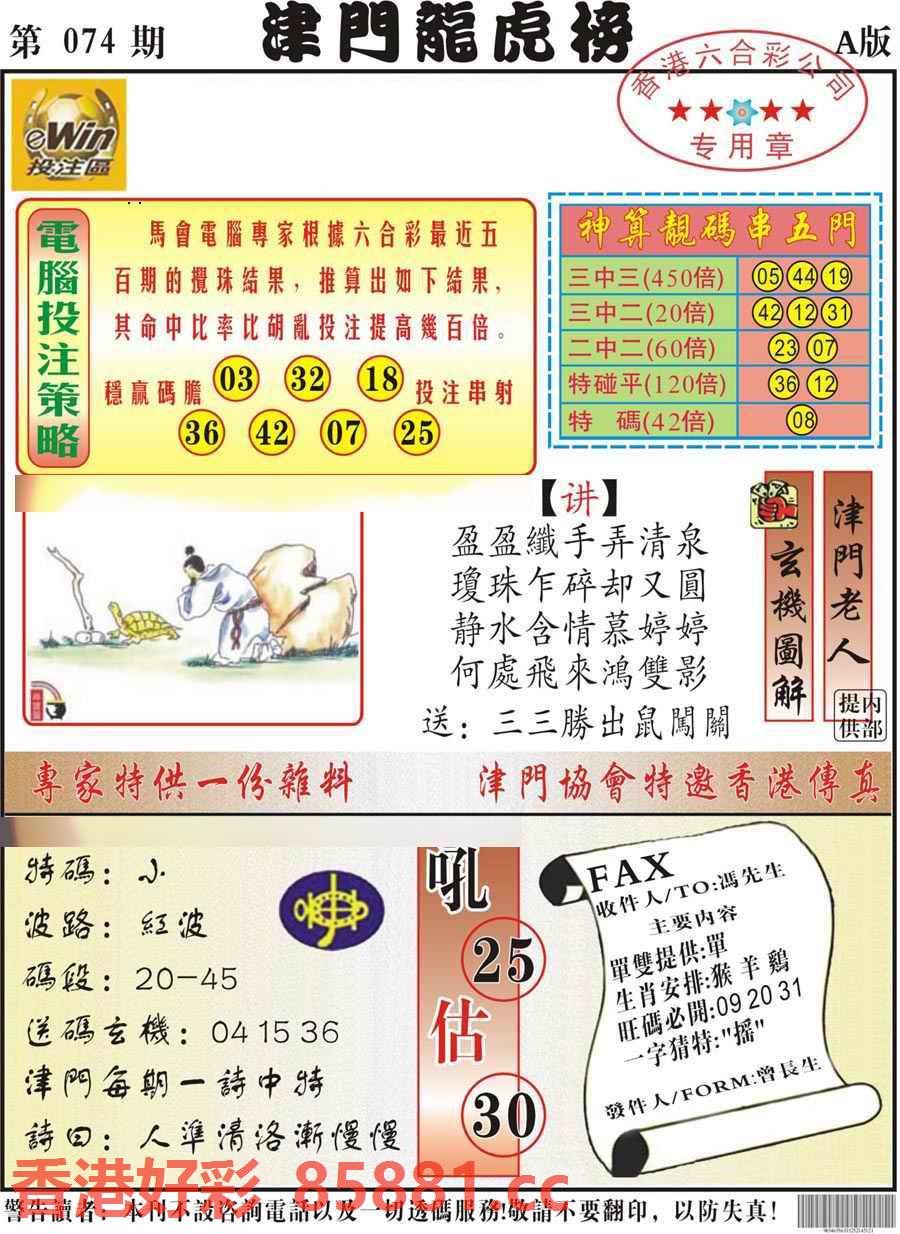 第 074 期
津門龍虎榜
A版
香港六合彩公司
专用章
eWin
投注區
電腦投注策略
馬會電腦專家根據六合彩最近五
百期的攪珠結果，推算出如下結果，
其命中比率比胡亂投注提高幾百倍。
穩贏碼膽 03 32 18 投注串射
36 42 07 25
神算靚碼串五門
三中三(450倍) 05 44 19
三中二(20倍) 42 12 31
二中二(60倍) 23 07
特碰平(120倍) 36 12
特 碼(42倍) 08
【讲】
盈盈纖手弄清泉
瓊珠乍碎却又圓
静水含情慕婷婷
何處飛來鴻雙影
送：三三勝出鼠闖關
玄機圖解
津門老人
内部提供
專家特供一份雜料
津門協會特邀香港傳真
特碼：小
波路：紅波
碼段：20-45
送碼玄機：04 15 36
津門每期一詩中特
詩曰：人準清洛漸慢慢
吼
25
估
30
FAX
收件人/TO:馮先生
主要内容
單雙提供:單
生肖安排:猴 羊 鷄
旺碼必開:09 20 31
一字猜特:"摇"
發件人/FORM:曾長生
香港好彩 85881.cc
警告讀者：本刊不設咨詢電話以及一切透碼服務!敬請不要翻印，以防失真!